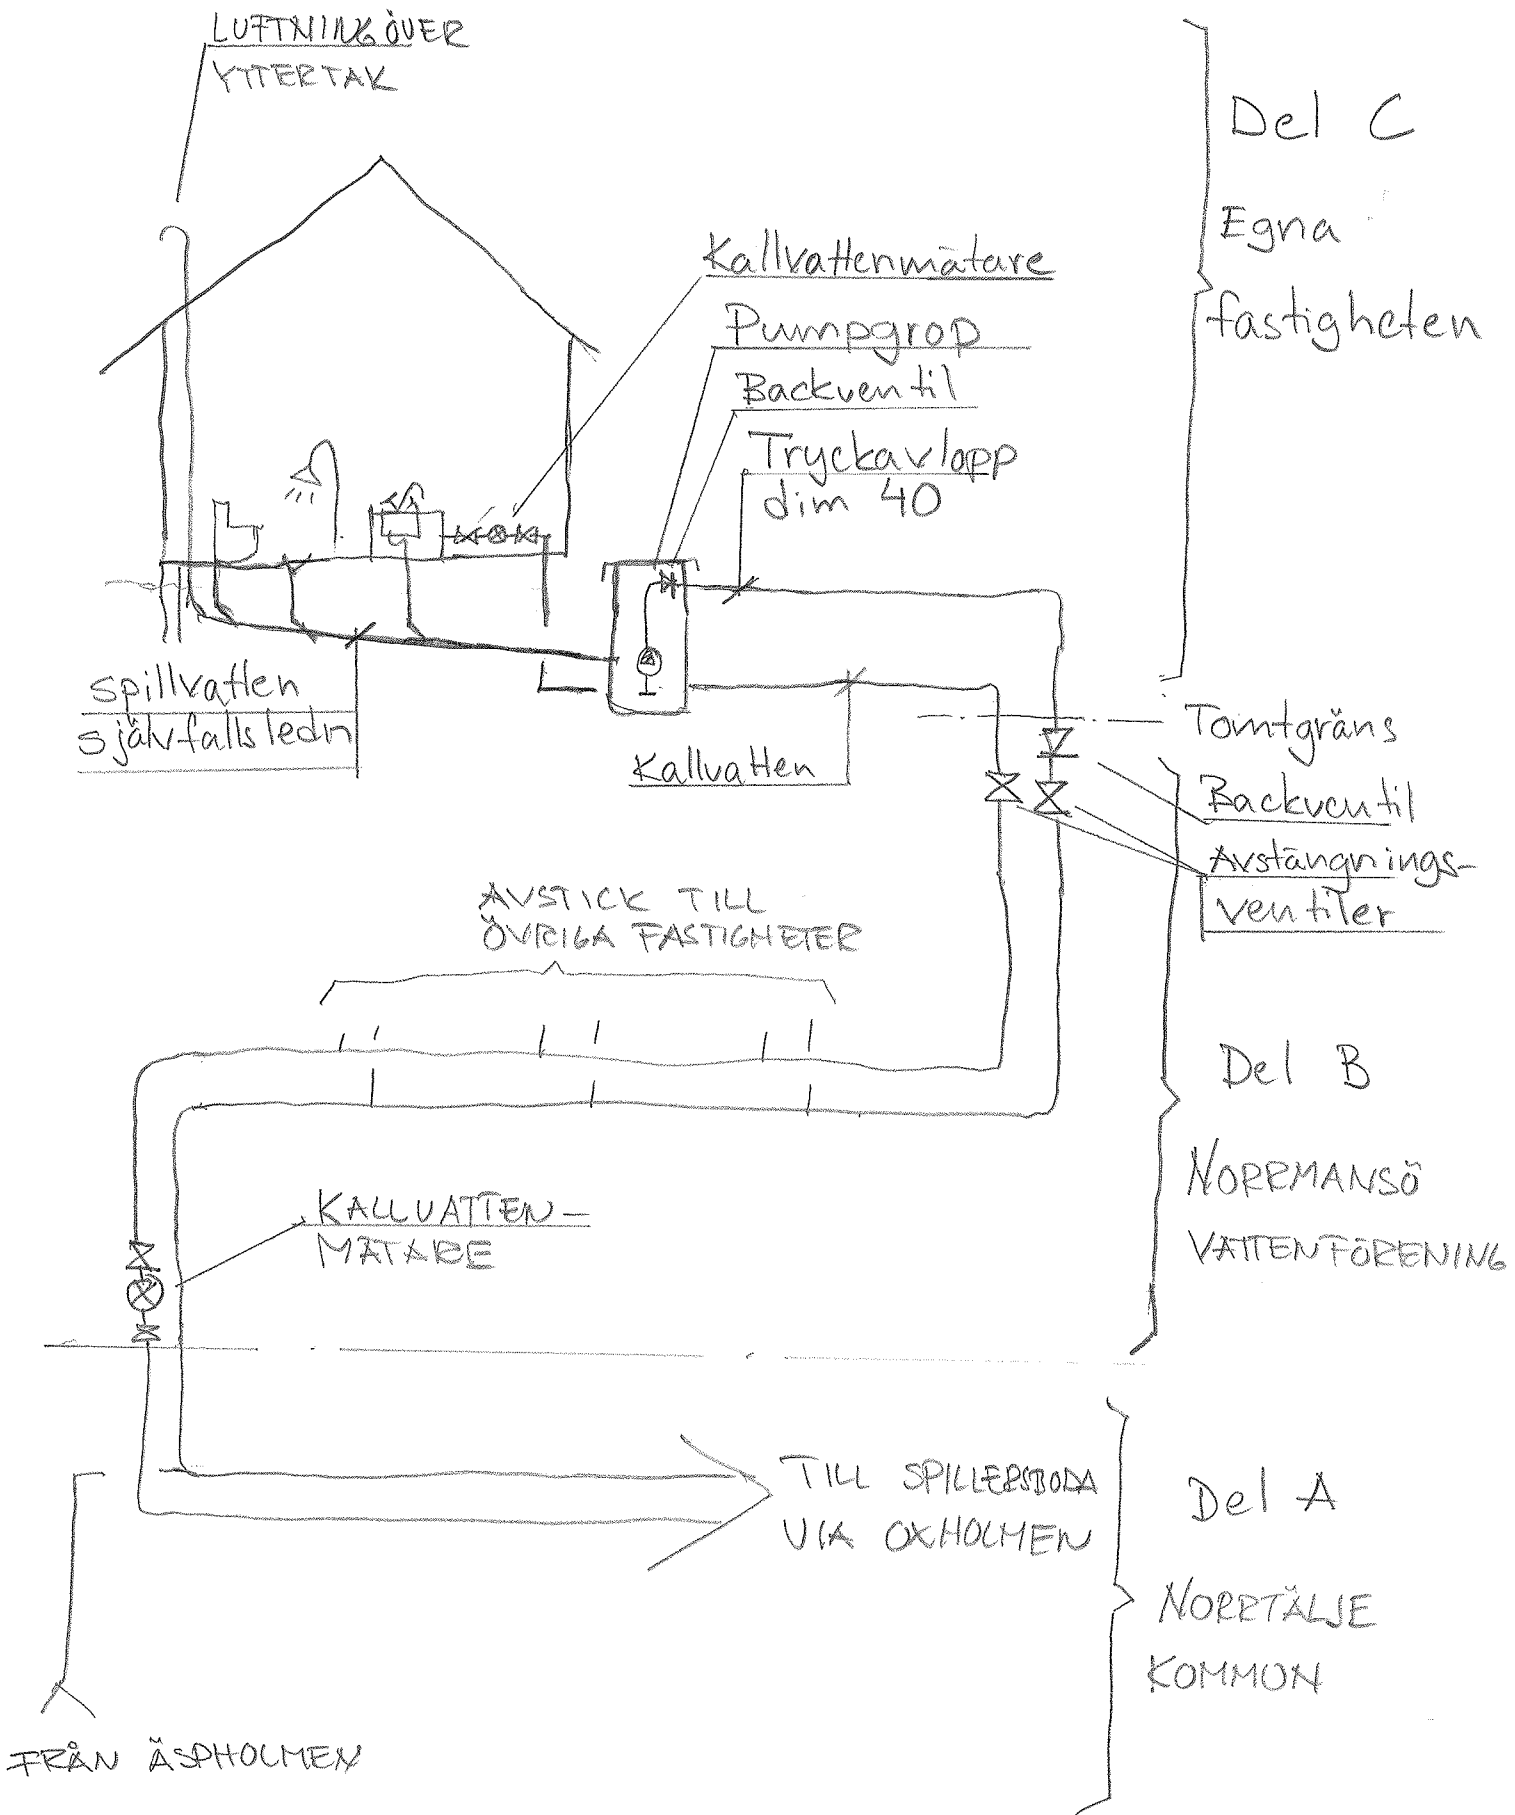 LUFTNING ÖVER
YTTERTAK
Del C
Egna
fastigheten
Kallvattenmätare
Pumpgrop
Backventil
Tryckavlopp
dim 40
spillvatten
självfallsledn
Kallvatten
Tomtgräns
Backventil
Avstängnings-
ventiler
AVSTICK TILL
ÖVRIGA FASTIGHETER
Del B
NORRMANSÖ
VATTENFÖRENING
KALLVATTEN-
MÄTARE
TILL SPILLERSBODA
VIA OXHOLMEN
Del A
NORRTÄLJE
KOMMUN
FRÅN ÄSPHOLMEN